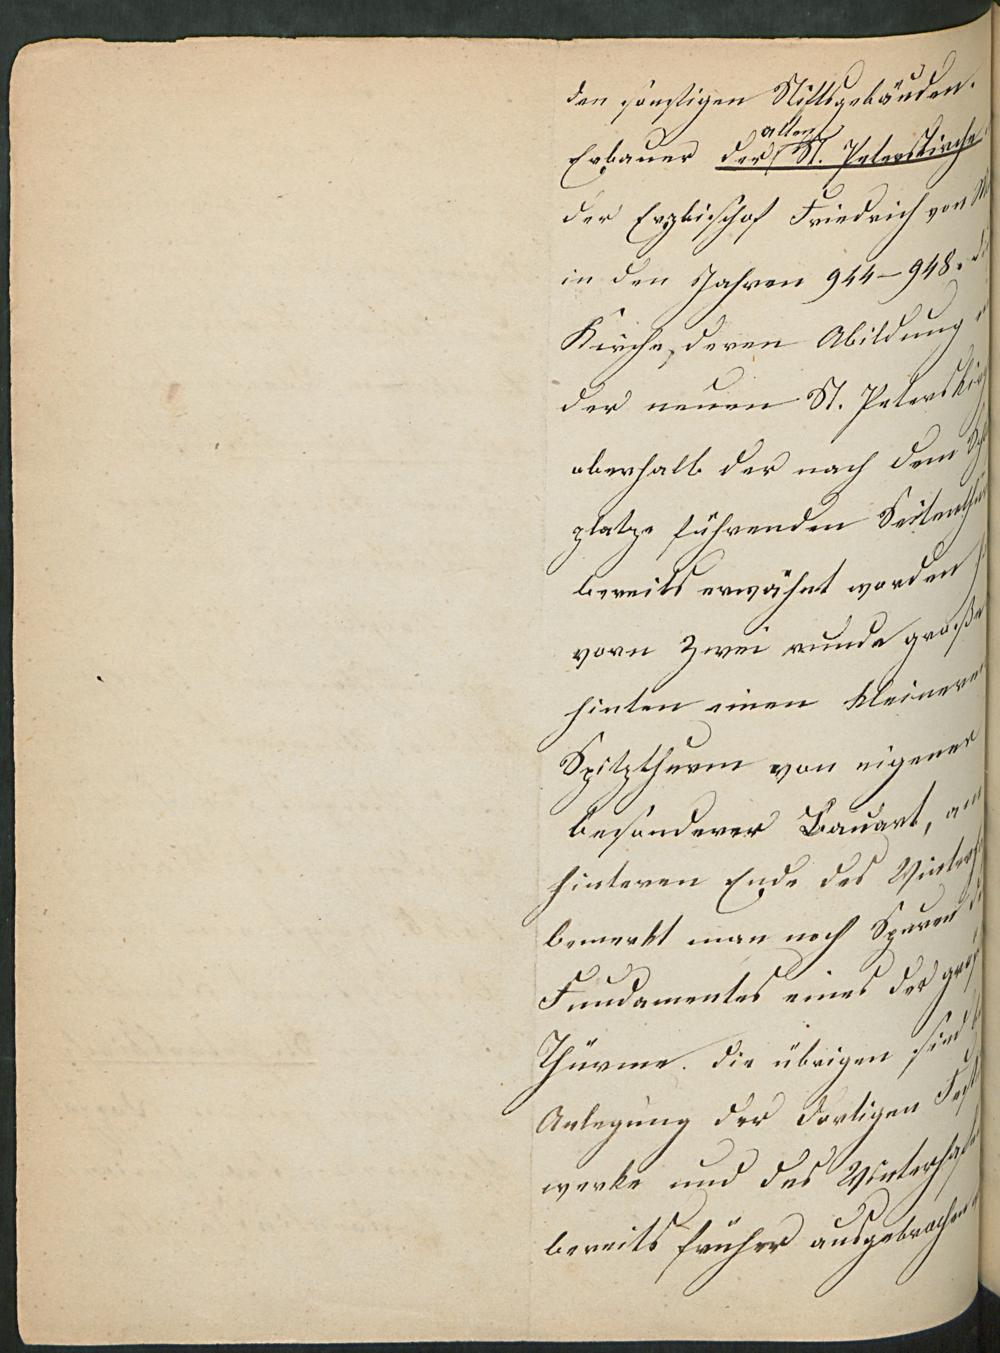 den sonstigen Stiftsgebäuden.
alten
Erbauer der St. Peterskirche
der Erzbischof Friedrich von
in den Jahren 944–948. di
Kirche, deren Abildung
der neuen St. Peterskir
oberhalb der nach dem Schl
platze führenden Seitenthür
bereits erwähnt worden
vorn Zwei runde große
hinten einen kleineren
Spitzthurm von eigener
besonderer Bauart, am
hinteren Ende des Winterh
bemerkt man noch Spuren d
Fundamentes eines der groß
Thürme. die übrigen sind b
Anlegung der dortigen Fest
werke und des Winterhafe
bereits früher ausgebrochen